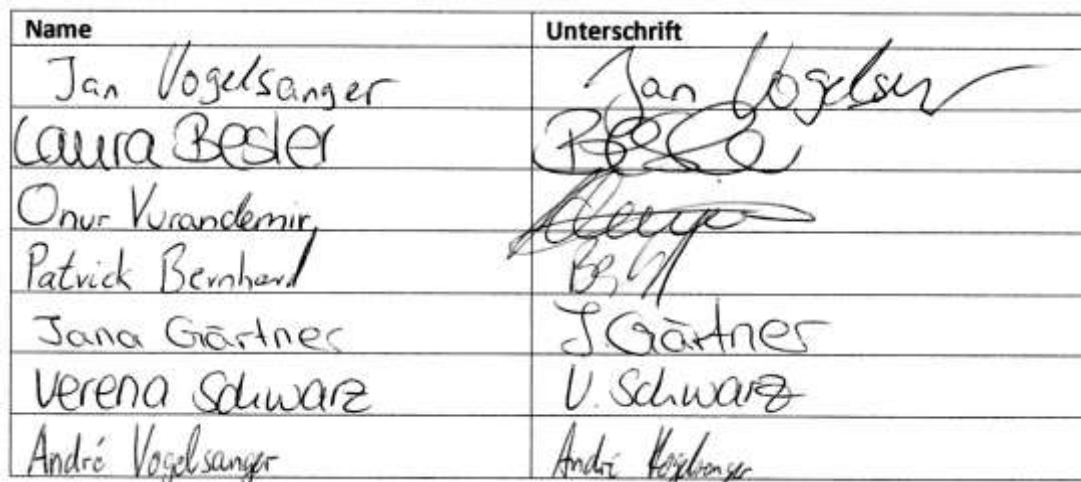 Name Unterschrift
Jan Vogelsanger Jan Vogelsan
Laura Besler
Onur Vurandemir
Patrick Bernhard
Jana Gärtner J. Gärtner
Verena Schwarz V. Schwarz
André Vogelsanger André Vogelsanger